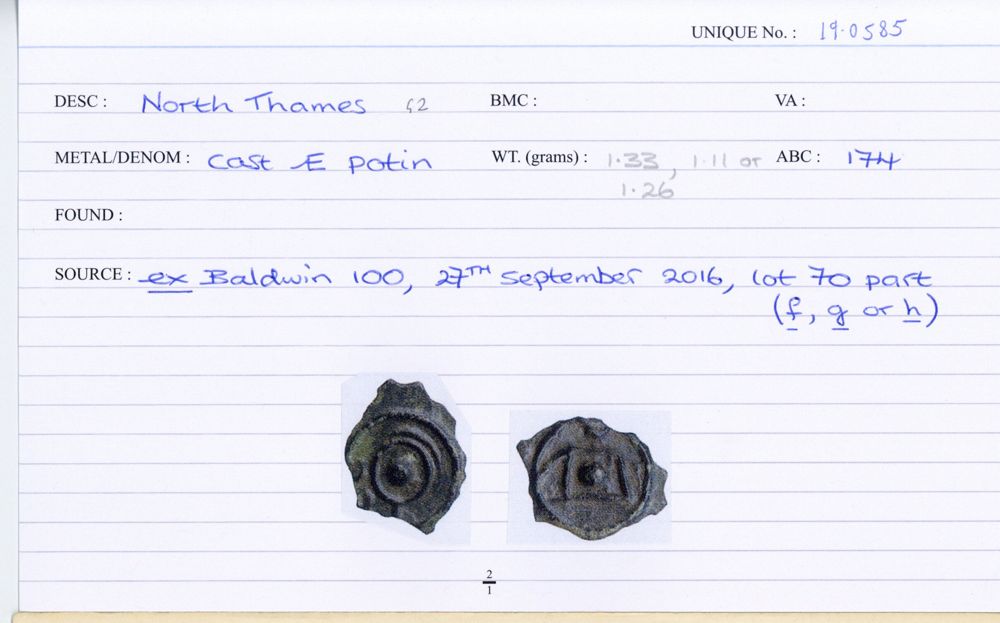 UNIQUE No. : 19.0585
DESC : North Thames BMC : VA :
METAL/DENOM : Cast Æ Potin WT. (grams) : 1.33, 1.11 or ABC : 174
1.26
FOUND :
SOURCE : ex Baldwin 100, 27TH September 2016, lot 70 part
(f, g or h)
2
1